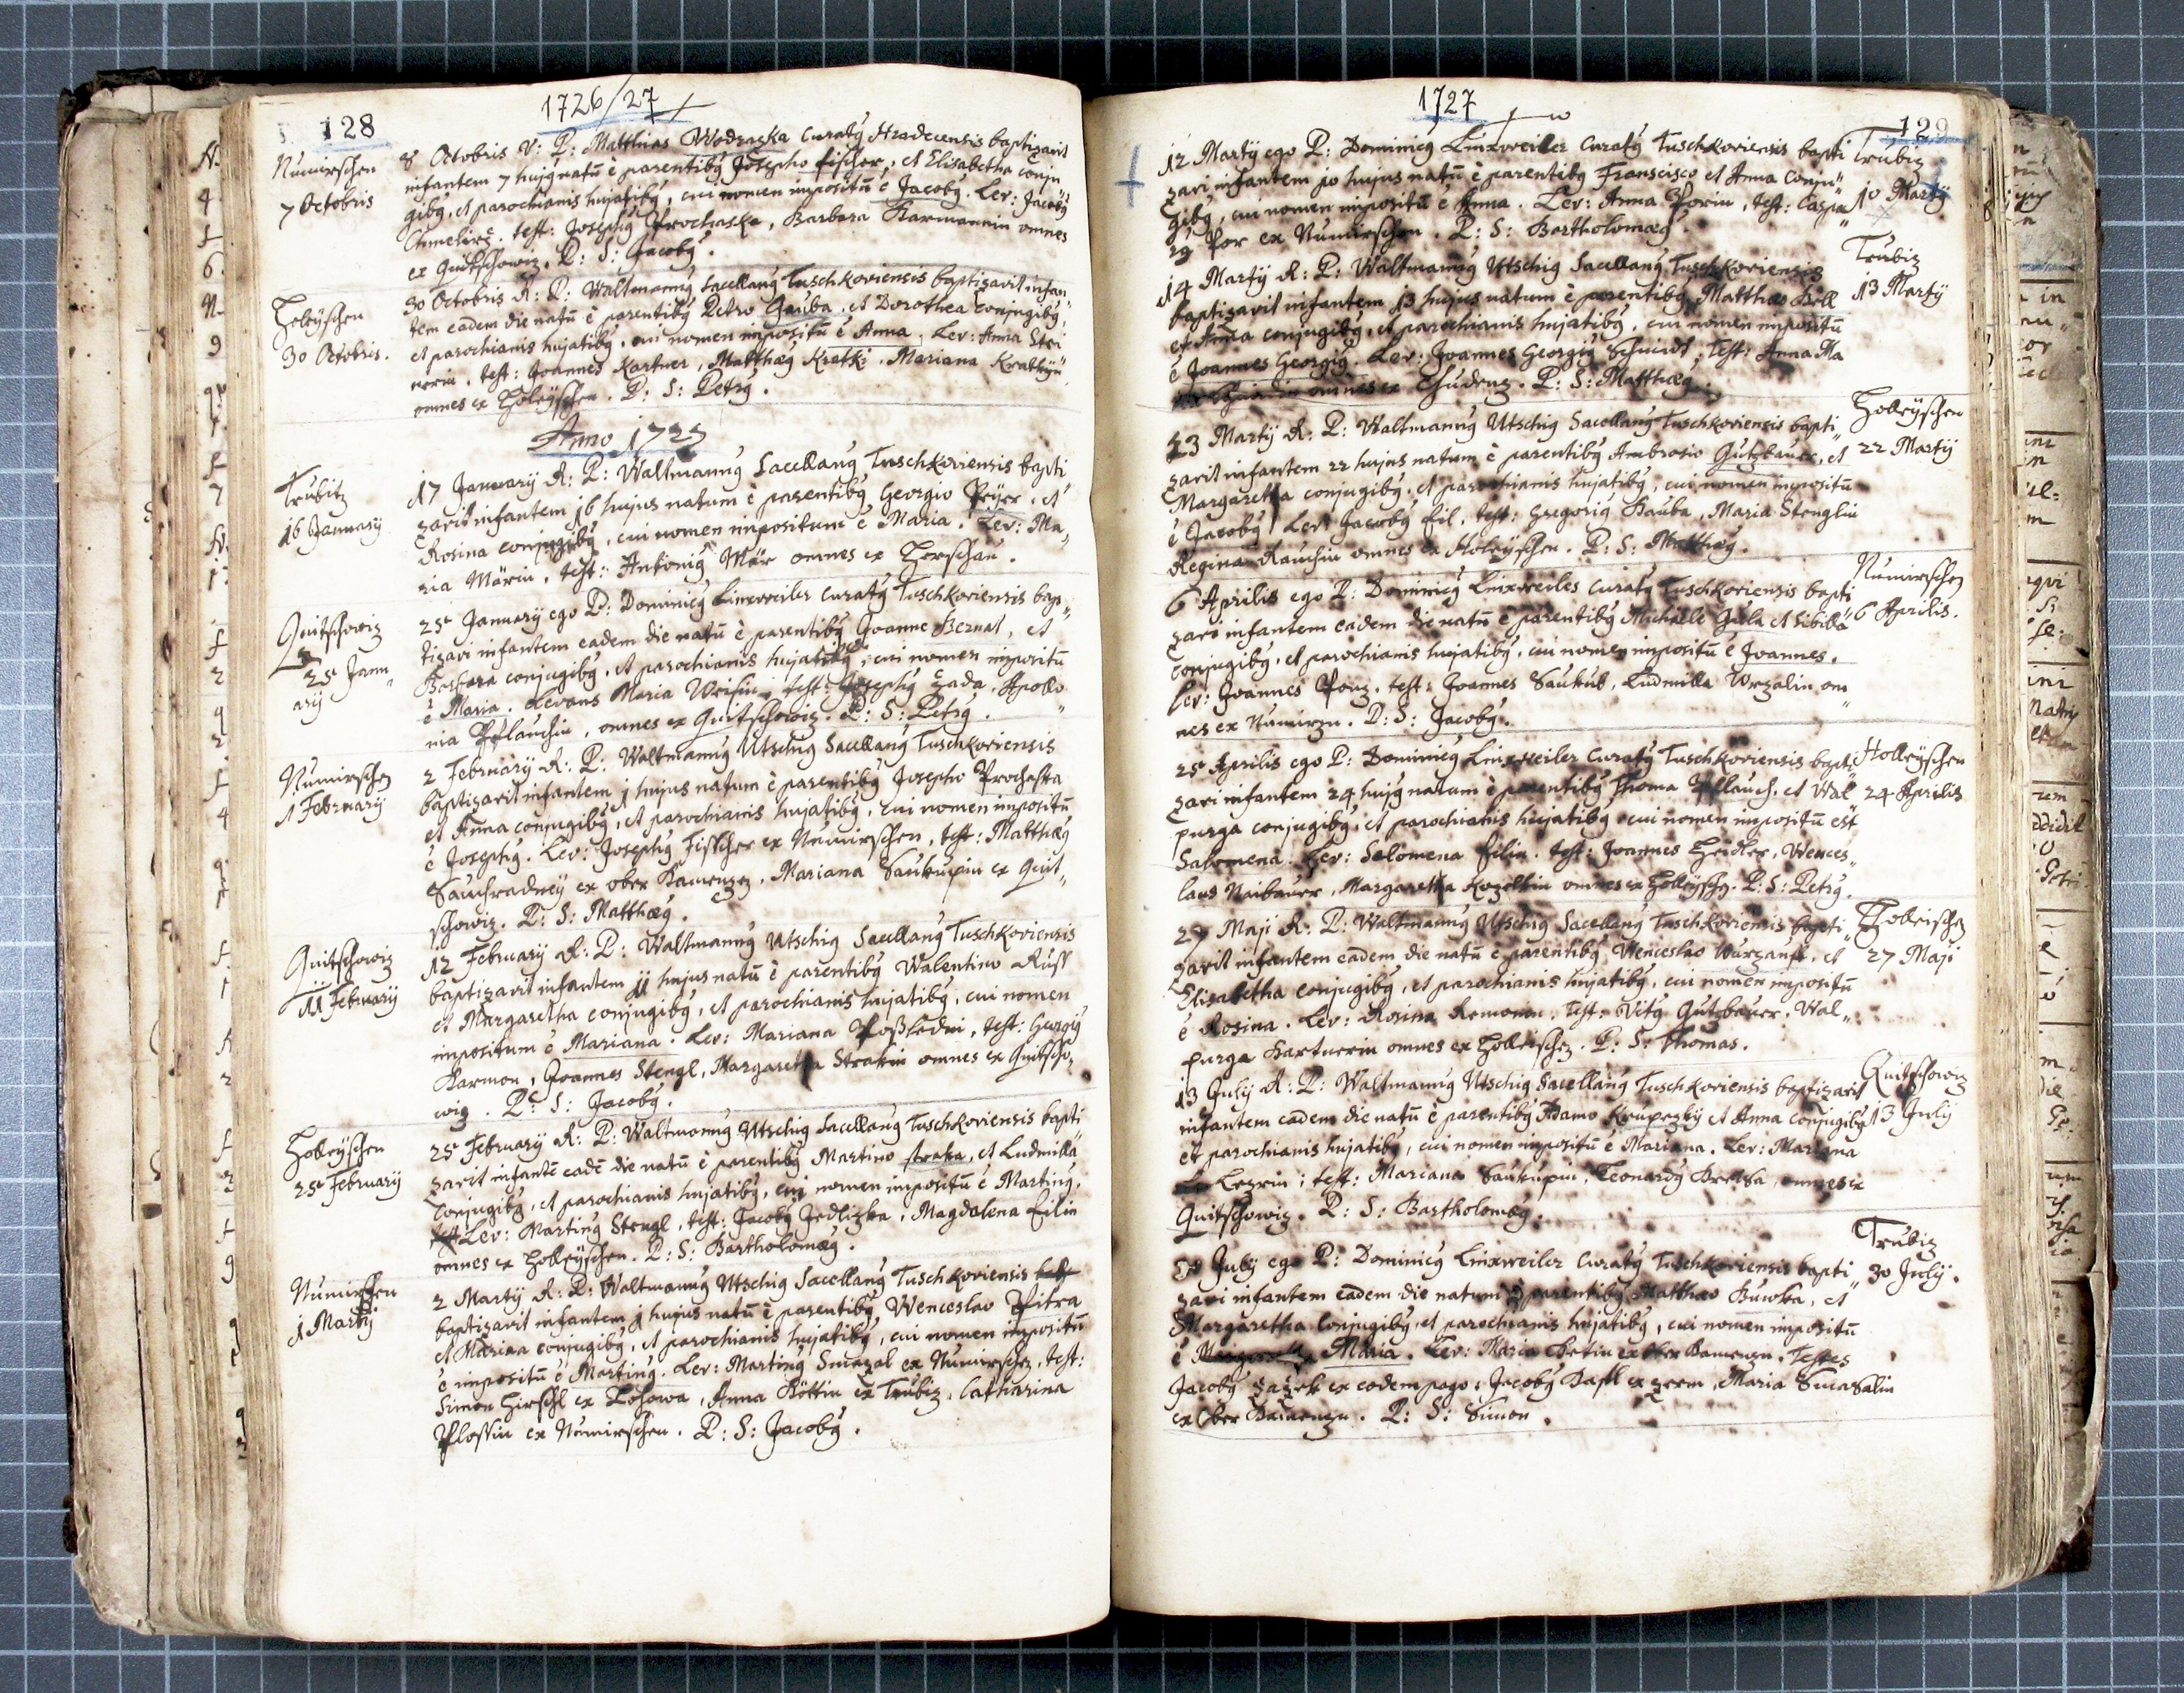 128
1726/27
Numirschen
7 Octobris
8 Octobris V: P: Matthias Wodraska Curatꝰ Hradecensis baptizavit
infantem 7 hujꝰ natū è parentibꝰ Josepho fischer, et Elisabetha conju
gibꝰ, et parochianis hujatibꝰ, cui nomen impositū ē Jacobꝰ. Lev: Jacobꝰ
test: Josephꝰ Prochaska, Barbara Harmannin omnes
ex Quitschowiz. P: S: Jacobꝰ.
Holeÿschen
30 Octobris.
30 Octobris R: P: Waltmannꝰ Sacellanꝰ Tuschkoviensis baptizavit infan„
tem eadem die natū è parentibꝰ Petro Hauba, et Dorothea conjugibꝰ,
et parochianis hujatibꝰ, cui nomen impositū ē Anna. Lev: Anna Stei
nerin. test: Joannes Kartner, Matthæꝰ Kratki, Mariana Kratkÿn
omnes ex Holeÿschen. P: S: Petrꝰ.
Anno 1727
Trubitz
16 January
17 January R: P: Waltmannꝰ Sacellanꝰ Tuschkoviensis bapti
zavit infantem 16 hujus natum è parentibꝰ Georgio Peÿer, et
Rosina conjugibꝰ, cui nomen impositum ē Maria. Lev: Ma„
ria Märin, test: Antoniꝰ Mär omnes ex Horschau.
Quitschowiz
25 Janu„
arÿ
25 January ego P: Dominicꝰ Linxweiler Curatꝰ Tuschkoviensis bap„
tizavi infantem eadem die natū è parentibꝰ Joanne Bernat, et
Barbara conjugibꝰ, et parochianis hujatibꝰ, cui nomen impositū
ē Maria. Levans Maria Weisin, test: Josephꝰ Zada, Apollo„
nia Pflauchin, omnes ex Quitschowiz. P: S: Petrꝰ.
Numirschen
1 February
2 February R: P: Waltmannꝰ Utschig Sacellanꝰ Tuschkoviensis
baptizavit infantem 1 hujus natum è parentibꝰ Josepho Prochaska
et Anna conjugibꝰ, et parochianis hujatibꝰ, cui nomen impositū
ē Josephꝰ. Lev: Josephꝰ Fisscher ex Numirschen, test: Matthæꝰ
Sauchradneÿ ex ober Kamenzen, Mariana Saukupin ex Quit„
schowiz. P: S: Matthæꝰ.
Quitschowiz
11 February
12 February R: P: Waltmannꝰ Utschig Sacellanꝰ Tuschkoviensis
baptizavit infantem 11 hujus natū è parentibꝰ Walentino Russ
et Margaretha conjugibꝰ, et parochianis hujatibꝰ, cui nomen
impositum ē Mariana. Lev: Mariana Poßledni, test: Georgiꝰ
Harmon, Joannes Stengl, Margaretha Strakin omnes ex Quitscho„
wiz. P: S: Jacobꝰ.
Holleÿschen
25 February
25 February R: P: Waltmannꝰ Utschig Sacellanꝰ Tuschkoviensis bapti
zavit infantē eadē die natū è parentibꝰ Martino straka, et Ludmilla
conjugibꝰ, et parochianis hujatibꝰ, cui nomen impositū ē Martinꝰ.
Lev: Martinꝰ Stengl, test: Jacobꝰ Jedlizka, Magdalena Filin
omnes ex Holleÿschen. P: S: Bartholomæꝰ.
Numirschen
1 Martÿ
2 Martÿ R: P: Waltmannꝰ Utschig Sacellanꝰ Tuschkoviensis
baptizavit infantem 1 hujus natū è parentibꝰ Wenceslao Pitra
et Mariana conjugibꝰ, et parochianis hujatibꝰ, cui nomen impositū
ē impositū ē Martinꝰ. Lev: Martinꝰ Smazal ex Numirschen, test:
Simon Hirschl ex Losowa, Anna Köttin ex Trubiz, Catharina
Plossin ex Numirschen. P: S: Jacobꝰ.
1727
129
Trubiz
10 Martÿ
12 Martÿ ego P: Dominicꝰ Linxweiler Curatꝰ Tuschkoviensis bapti
zavi infantem 10 hujus natū è parentibꝰ Franscisco et Anna Conju„
gibꝰ, cui nomen impositū ē Anna. Lev: Anna Porin, test: Caspa„
rꝰ Por ex Numirschen. P: S: Bartholomæꝰ.
Trubiz
13 Martÿ
14 Martÿ R: P: Waltmannꝰ Utschig Sacellanꝰ Tuschkoviensis
baptizavit infantem 13 hujus natum è parentibꝰ Matthæo Köll
et Anna conjugibꝰ, et parochianis hujatibꝰ, cui nomen impositū
ē Joannes Georgiꝰ. Lev: Joannes Georgiꝰ Schmidt, test: Anna Ma
omnes ex Chudenz. P: S: Matthæꝰ.
Holleÿschen
22 Martÿ
23 Martÿ R: P: Waltmannꝰ Utschig Sacellanꝰ Tuschkoviensis bapti„
zavit infantem 22 hujus natum è parentibꝰ Ambrosio Gutzbauer, et
Margaretha conjugibꝰ, et parochianis hujatibꝰ, cui nomen impositū
ē Jacobꝰ. Lev: Jacobꝰ fil, test: Gregoriꝰ Hauba, Maria Stenglin
Regina Rauchin omnes ex Holeÿschen. P: S: Matthæꝰ.
Numirschen
6 Aprilis.
6 Aprilis ego P: Dominicꝰ Linxweiler Curatꝰ Tuschkoviensis bapti
zavi infantem eadem die natū è parentibꝰ Michaele Gula et Sibilla„
conjugibꝰ, et parochianis hujatibꝰ, cui nomen impositū ē Joannes.
Lev: Joannes Pouz. test: Joannes Saukub, Ludmilla Wrzalin om„
nes ex Numirzn. P: S: Jacobꝰ.
Holleÿschen
24 Aprilis
25 Aprilis ego P: Dominicꝰ Linxweiler Curatꝰ Tuschkoviensis bapti
zavi infantem 24 hujꝰ natum è parentibꝰ Thoma Pflauch, et Wal„
purga conjugibꝰ, et parochianis hujatibꝰ cui nomen impositū est
Salomena. Lev: Salomena filin. test: Joannes Heidler, Wences„
laus Naibauer, Margaretha Kozeltin omnes ex Holleÿschn. P: S: Petrꝰ.
Holleischen
27 Maji
27 Maji R: P: Waltmannꝰ Utschig Sacellanꝰ Tuschkoviensis bapti„
zavit infantem eadem die natū è parentibꝰ Wenceslao Wurzanft, et
Elisabetha conjugibꝰ, et parochianis hujatibꝰ, cui nomen impositū
ē Rosina. Lev: Rosina Remonin, test: Vitꝰ Gutzbauer, Wal„
purga Hartnerin omnes ex Holleischen. P: S: Thomas.
Quitschowiz
13 July
13 July R: P: Waltmannꝰ Utschig Sacellanꝰ Tuschkoviensis baptizavit
infantem eadem die natū è parentibꝰ Adamo Krupezkÿ et Anna conjugibꝰ
et parochianis hujatibꝰ, cui nomen impositū ē Mariana. Lev: Mariana
Lezrin; test: Mariana Saukupin, Leonardꝰ Bretsa, omnes ex
Quitschowiz. P: S: Bartholomæꝰ.
Trubiz
30 July.
July ego P: Dominicꝰ Linxweiler Curatꝰ Tuschkoviensis bapti„
zavi infantem eadem die natum è parentibꝰ Matthæo Buwka, et
Margaretha Conjugibꝰ et parochianis hujatibꝰ, cui nomen impositū
ē Maria. Lev: Maria ex ober Kamenzn. Testes
Jacobꝰ ex eodem pago, Jacobꝰ ex Maria Smasalin
ex Ober Kamenzn. P: S: Simon.